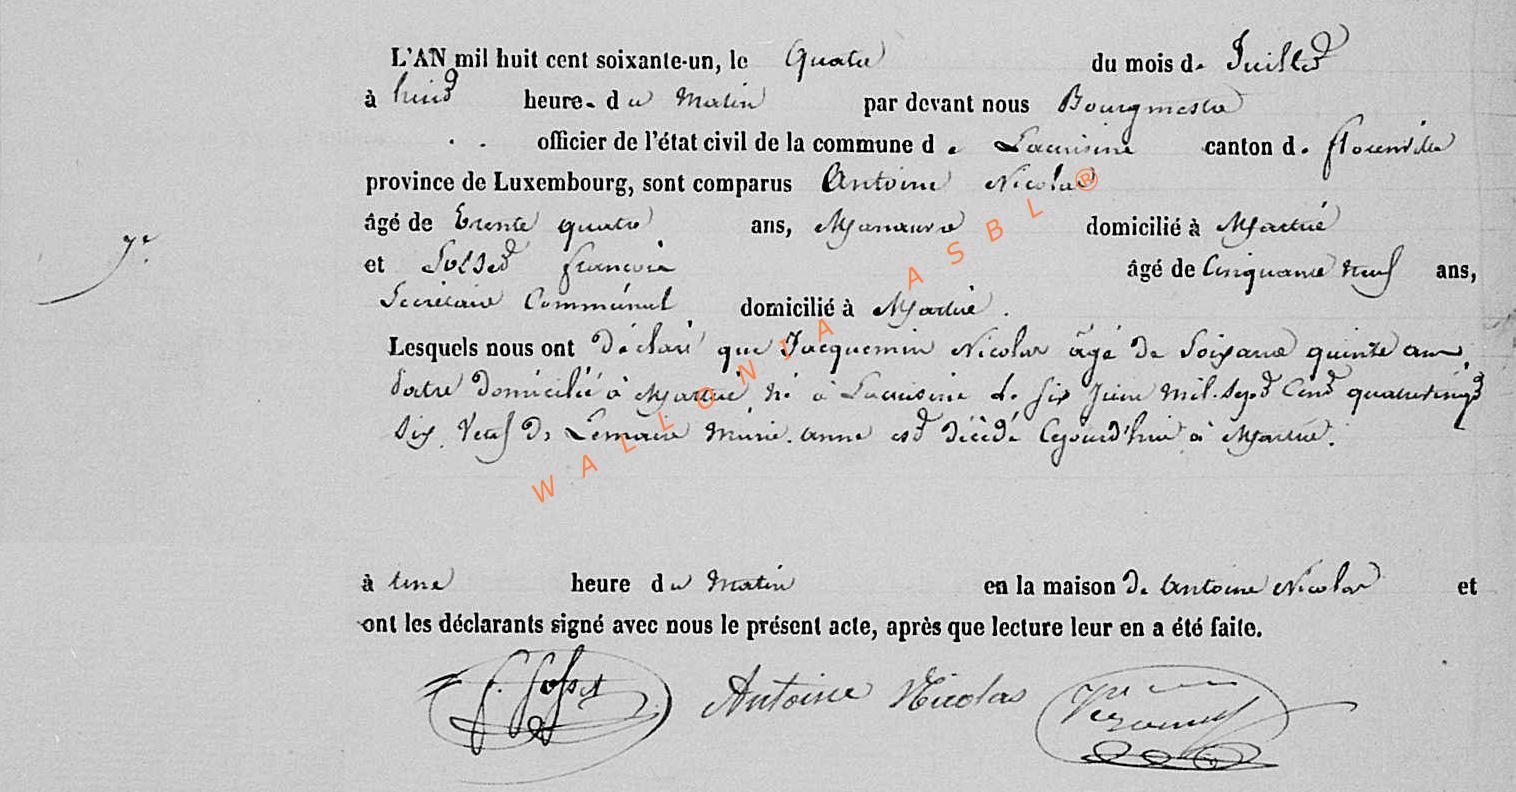 L'AN mil huit cent soixante-un, le Quatre du mois de Juillet
à huit heure. du Matin par devant nous Bourgmestre
officier de l'état civil de la commune de Lacuisine canton de florenville
province de Luxembourg, sont comparus Antoine Nicolas
âgé de trente quatre ans, Manœuvre domicilié à Martué
7e
et françois âgé de Cinquante neuf ans,
Secrétaire Communal domicilié à Martué.
Lesquels nous ont déclaré que Jacquemin Nicolas âgé de Soixante quinze ans
domicilié à Martué né à Lacuisine le six Juin mil. sept Cent quatrevingt
six. Veuf de Lemaire Marie. anne est décédé Cejourd'hui à Martué.
à une heure du Matin en la maison de Antoine Nicolas et
ont les déclarants signé avec nous le présent acte, après que lecture leur en a été faite.
Antoine Nicolas
WALLONIA ASBL ®